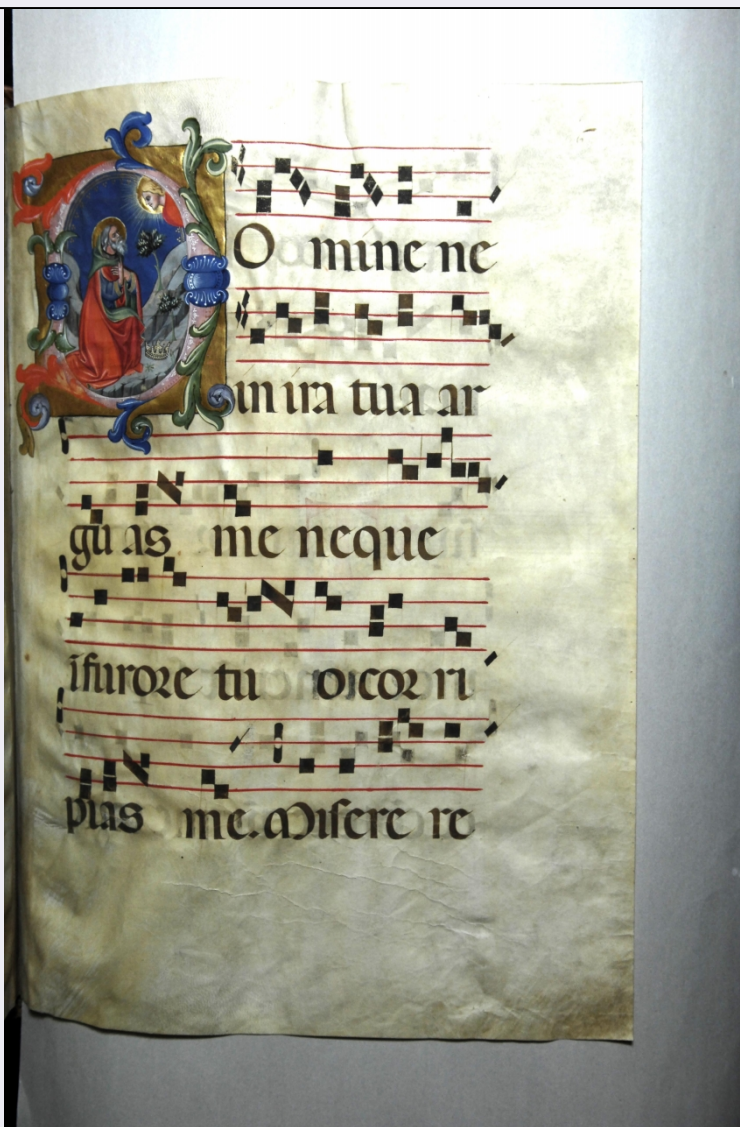 DOmine ne
in ira tua ar
guas me neque
ĩ furore tuo corri
pias me. Misere re